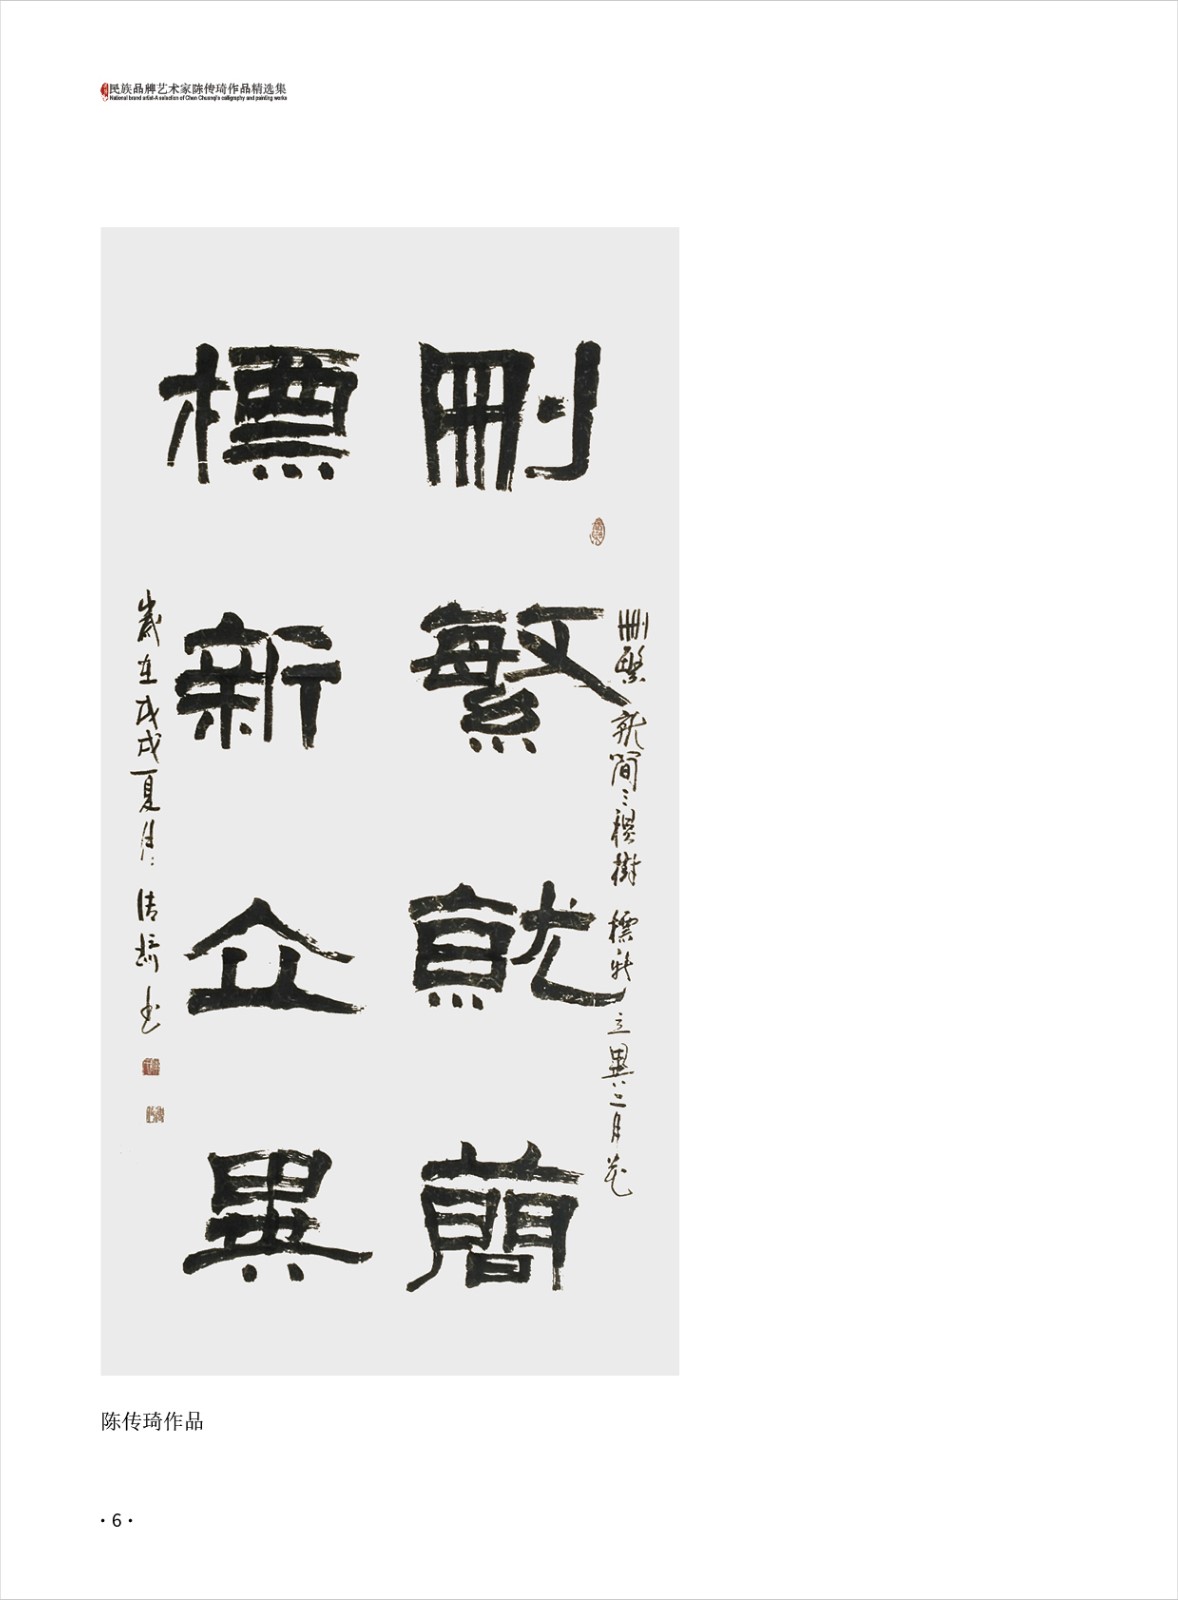 民族品牌艺术家陈传琦作品精选集
National brand artist-A selection of Chen Chuanqi's calligraphy and painting works
刪繁就簡
標新立異
刪繁就簡三穐樹標新立異二月花
歲在戊戌夏月傳琦書
陈传琦作品
·6·